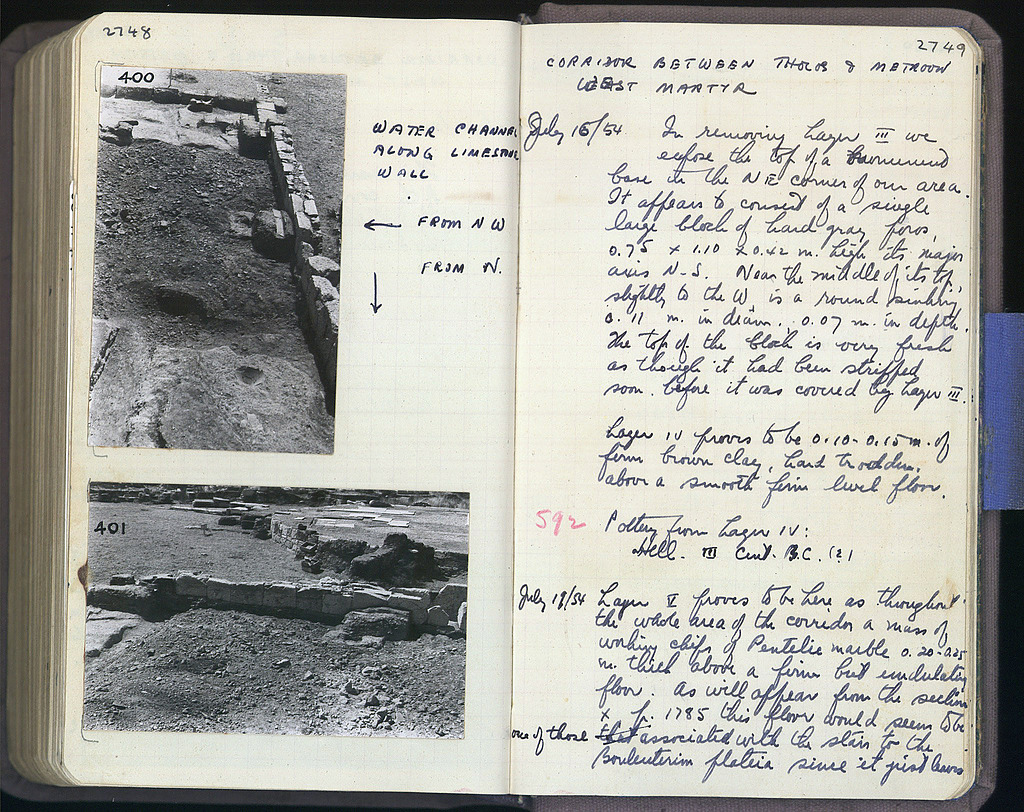 2748
400
WATER CHANNEL
ALONG LIMESTONE
WALL
← FROM NW
FROM N.
↓
401
2749
CORRIDOR BETWEEN THOLOS & METROON
WEST MARTYR
July 16/54 In removing Layer III we
expose the top of a monument
base in the NE corner of our area.
It appears to consist of a single
large block of hard gray poros,
0.75 x 1.10 x 0.42 m. high its major
axis N-S. Near the middle of its top,
slightly to the W, is a round sinking
0.11 m. in diam., 0.07 m. in depth.
The top of the block is very fresh
as though it had been stripped
soon before it was covered by Layer III.
Layer IV proves to be 0.10-0.15 m. of
firm brown clay, hard trodden,
above a smooth firm level floor.
592 Pottery from Layer IV:
Hell. III Cent. B.C. (?)
July 19/54 Layer V proves to be here as throughout
the whole area of the corridor a mass of
working chips of Pentelic marble 0.20-0.25
m. thick above a firm but undulating
floor. As will appear from the section
x p. 1785 this floor would seem to be
one of those that associated with the stairs to the
Bouleuterion plateia since it just leaves